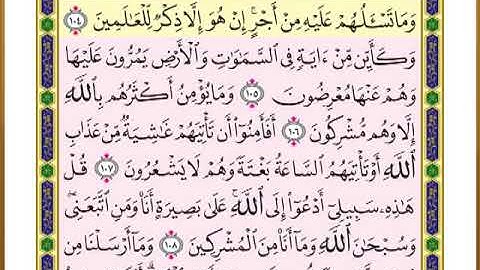 وَمَا تَسْـَٔلُهُمْ عَلَيْهِ مِنْ أَجْرٍ ۚ إِنْ هُوَ إِلَّا ذِكْرٌ لِّلْعَـٰلَمِينَ ١٠٤
وَكَأَيِّن مِّنْ ءَايَةٍ فِى ٱلسَّمَـٰوَٰتِ وَٱلْأَرْضِ يَمُرُّونَ عَلَيْهَا
وَهُمْ عَنْهَا مُعْرِضُونَ ١٠٥ وَمَا يُؤْمِنُ أَكْثَرُهُم بِٱللَّهِ
إِلَّا وَهُم مُّشْرِكُونَ ١٠٦ أَفَأَمِنُوٓا۟ أَن تَأْتِيَهُمْ غَـٰشِيَةٌ مِّنْ عَذَابِ
ٱللَّهِ أَوْ تَأْتِيَهُمُ ٱلسَّاعَةُ بَغْتَةً وَهُمْ لَا يَشْعُرُونَ ١٠٧ قُلْ
هَـٰذِهِۦ سَبِيلِىٓ أَدْعُوٓا۟ إِلَى ٱللَّهِ ۚ عَلَىٰ بَصِيرَةٍ أَنَا۠ وَمَنِ ٱتَّبَعَنِى ۖ
وَسُبْحَـٰنَ ٱللَّهِ وَمَآ أَنَا۠ مِنَ ٱلْمُشْرِكِينَ ١٠٨ وَمَآ أَرْسَلْنَا مِن